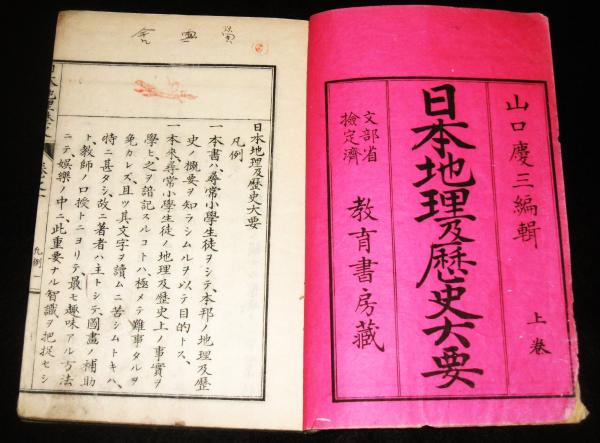 山口慶三編輯
上巻
日本地理及歴史大要
文部省
檢定濟
教育書房藏
日本地理及歴史大要
凡例
一本書ハ尋常小學生徒ヲシテ、本邦ノ地理及歴
史ノ概要ヲ知ラシムルヲ以テ目的トス、
一本來尋常小學生徒ノ地理及歴史上ノ事實ヲ
學ヒ、之ヲ諳記スルコトハ極メテ難事タルヲ
免カレス、且ツ其文字ヲ讀ムニ苦シムトキハ、
特ニ甚タシ、故ニ著者ハ主トシテ、圖畫ノ補助
ト、教師ノ口授トニヨリテ、最モ趣味アル方法
ニテ、娯樂ノ中ニ、此重要ナル智識ヲ把捉セシ
凡例